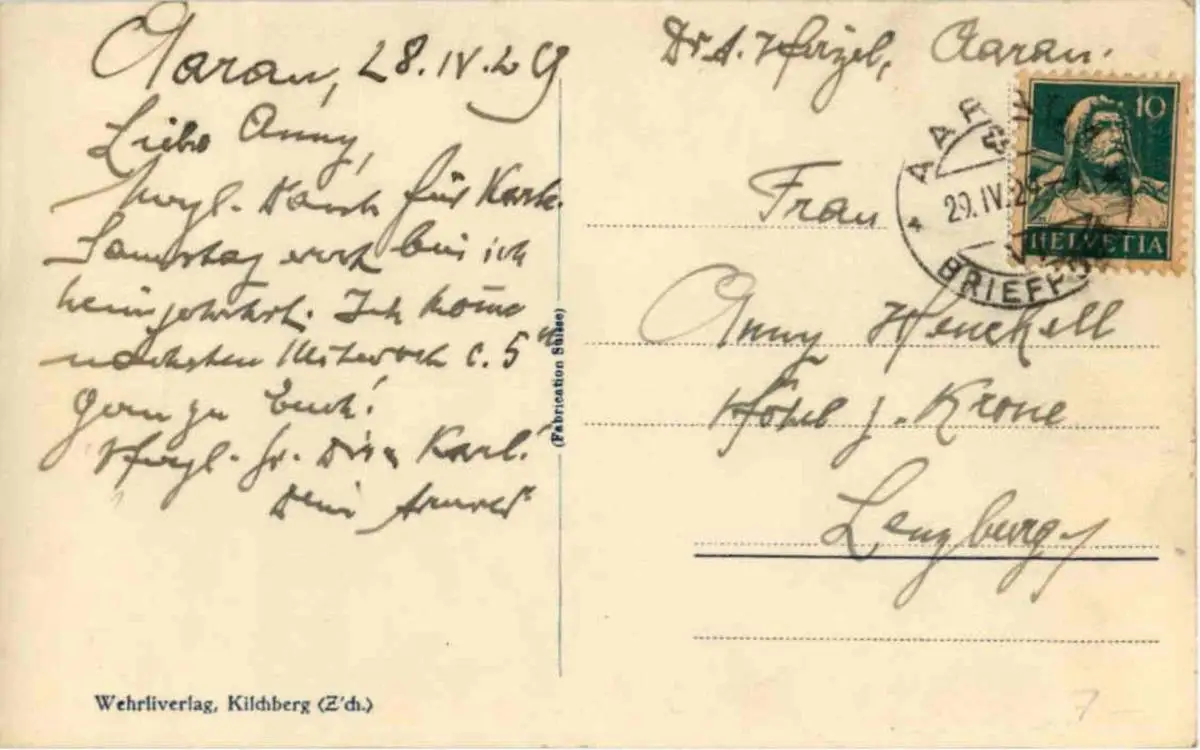 Aarau, 28.IV.29
Liebe Anny,
Herzl. Dank für Karte.
Samstag bin ich
heimgekehrt. Ich komme
nächsten Mittwoch c. 5ʰ
gern zu Euch!
Herzl. Gr. Dir & Karl.
Dein Arnold
Wehrliverlag, Kilchberg (Z'ch.)
(Fabrication Suisse)
Dr. A. Hirzel, Aarau.
AARAU
29.IV.29
BRIEFPOST
10
HELVETIA
Frau
Anny Henckell
Hôtel z. Krone
Lenzburg
7-